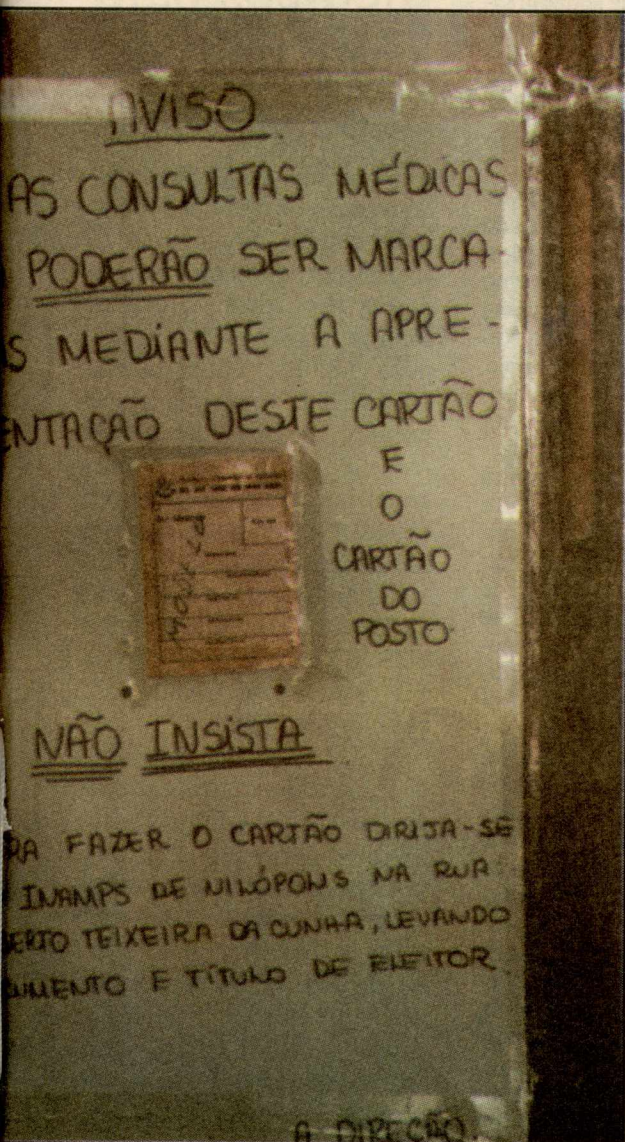 AVISO
AS CONSULTAS MÉDICAS
PODERÃO SER MARCA-
S MEDIANTE A APRE-
ENTAÇÃO DESTE CARTÃO
E
O
CARTÃO
DO
POSTO
NÃO INSISTA
RA FAZER O CARTÃO DIRIJA-SE
INAMPS DE NILÓPOLIS NA RUA
BERTO TEIXEIRA DA CUNHA, LEVANDO
UMENTO E TÍTULO DE ELEITOR.
A DIREÇÃO